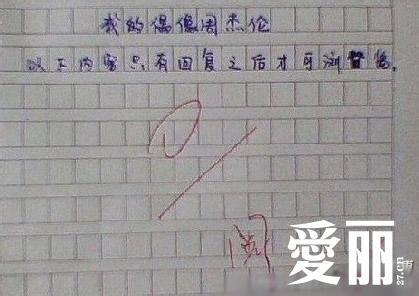 我的偶像周杰伦
以下内容只有回复之后才可浏览。
0
阅
爱丽
27.cn